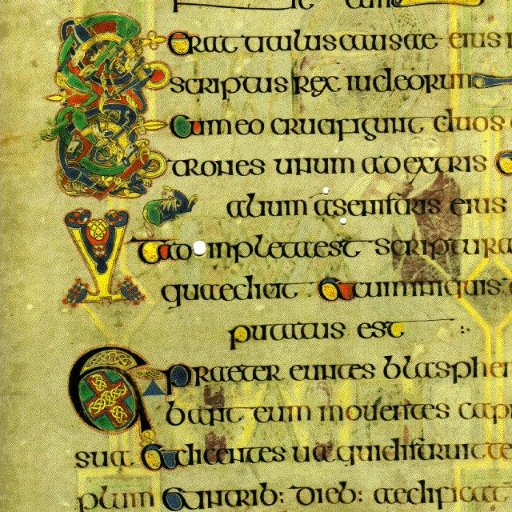 erat titulus causae eius i
scriptus rex iudeorum
cum eo crucifigunt duos
trones unum adextris
alium asenistris eius
inpletaest scriptura
quaedicit et cum iniquis
putatus est
praetereuntes blasphem
bant eum mouentes capi
sua et dicentes ua quidistruit te
plum : dieb: aedificat